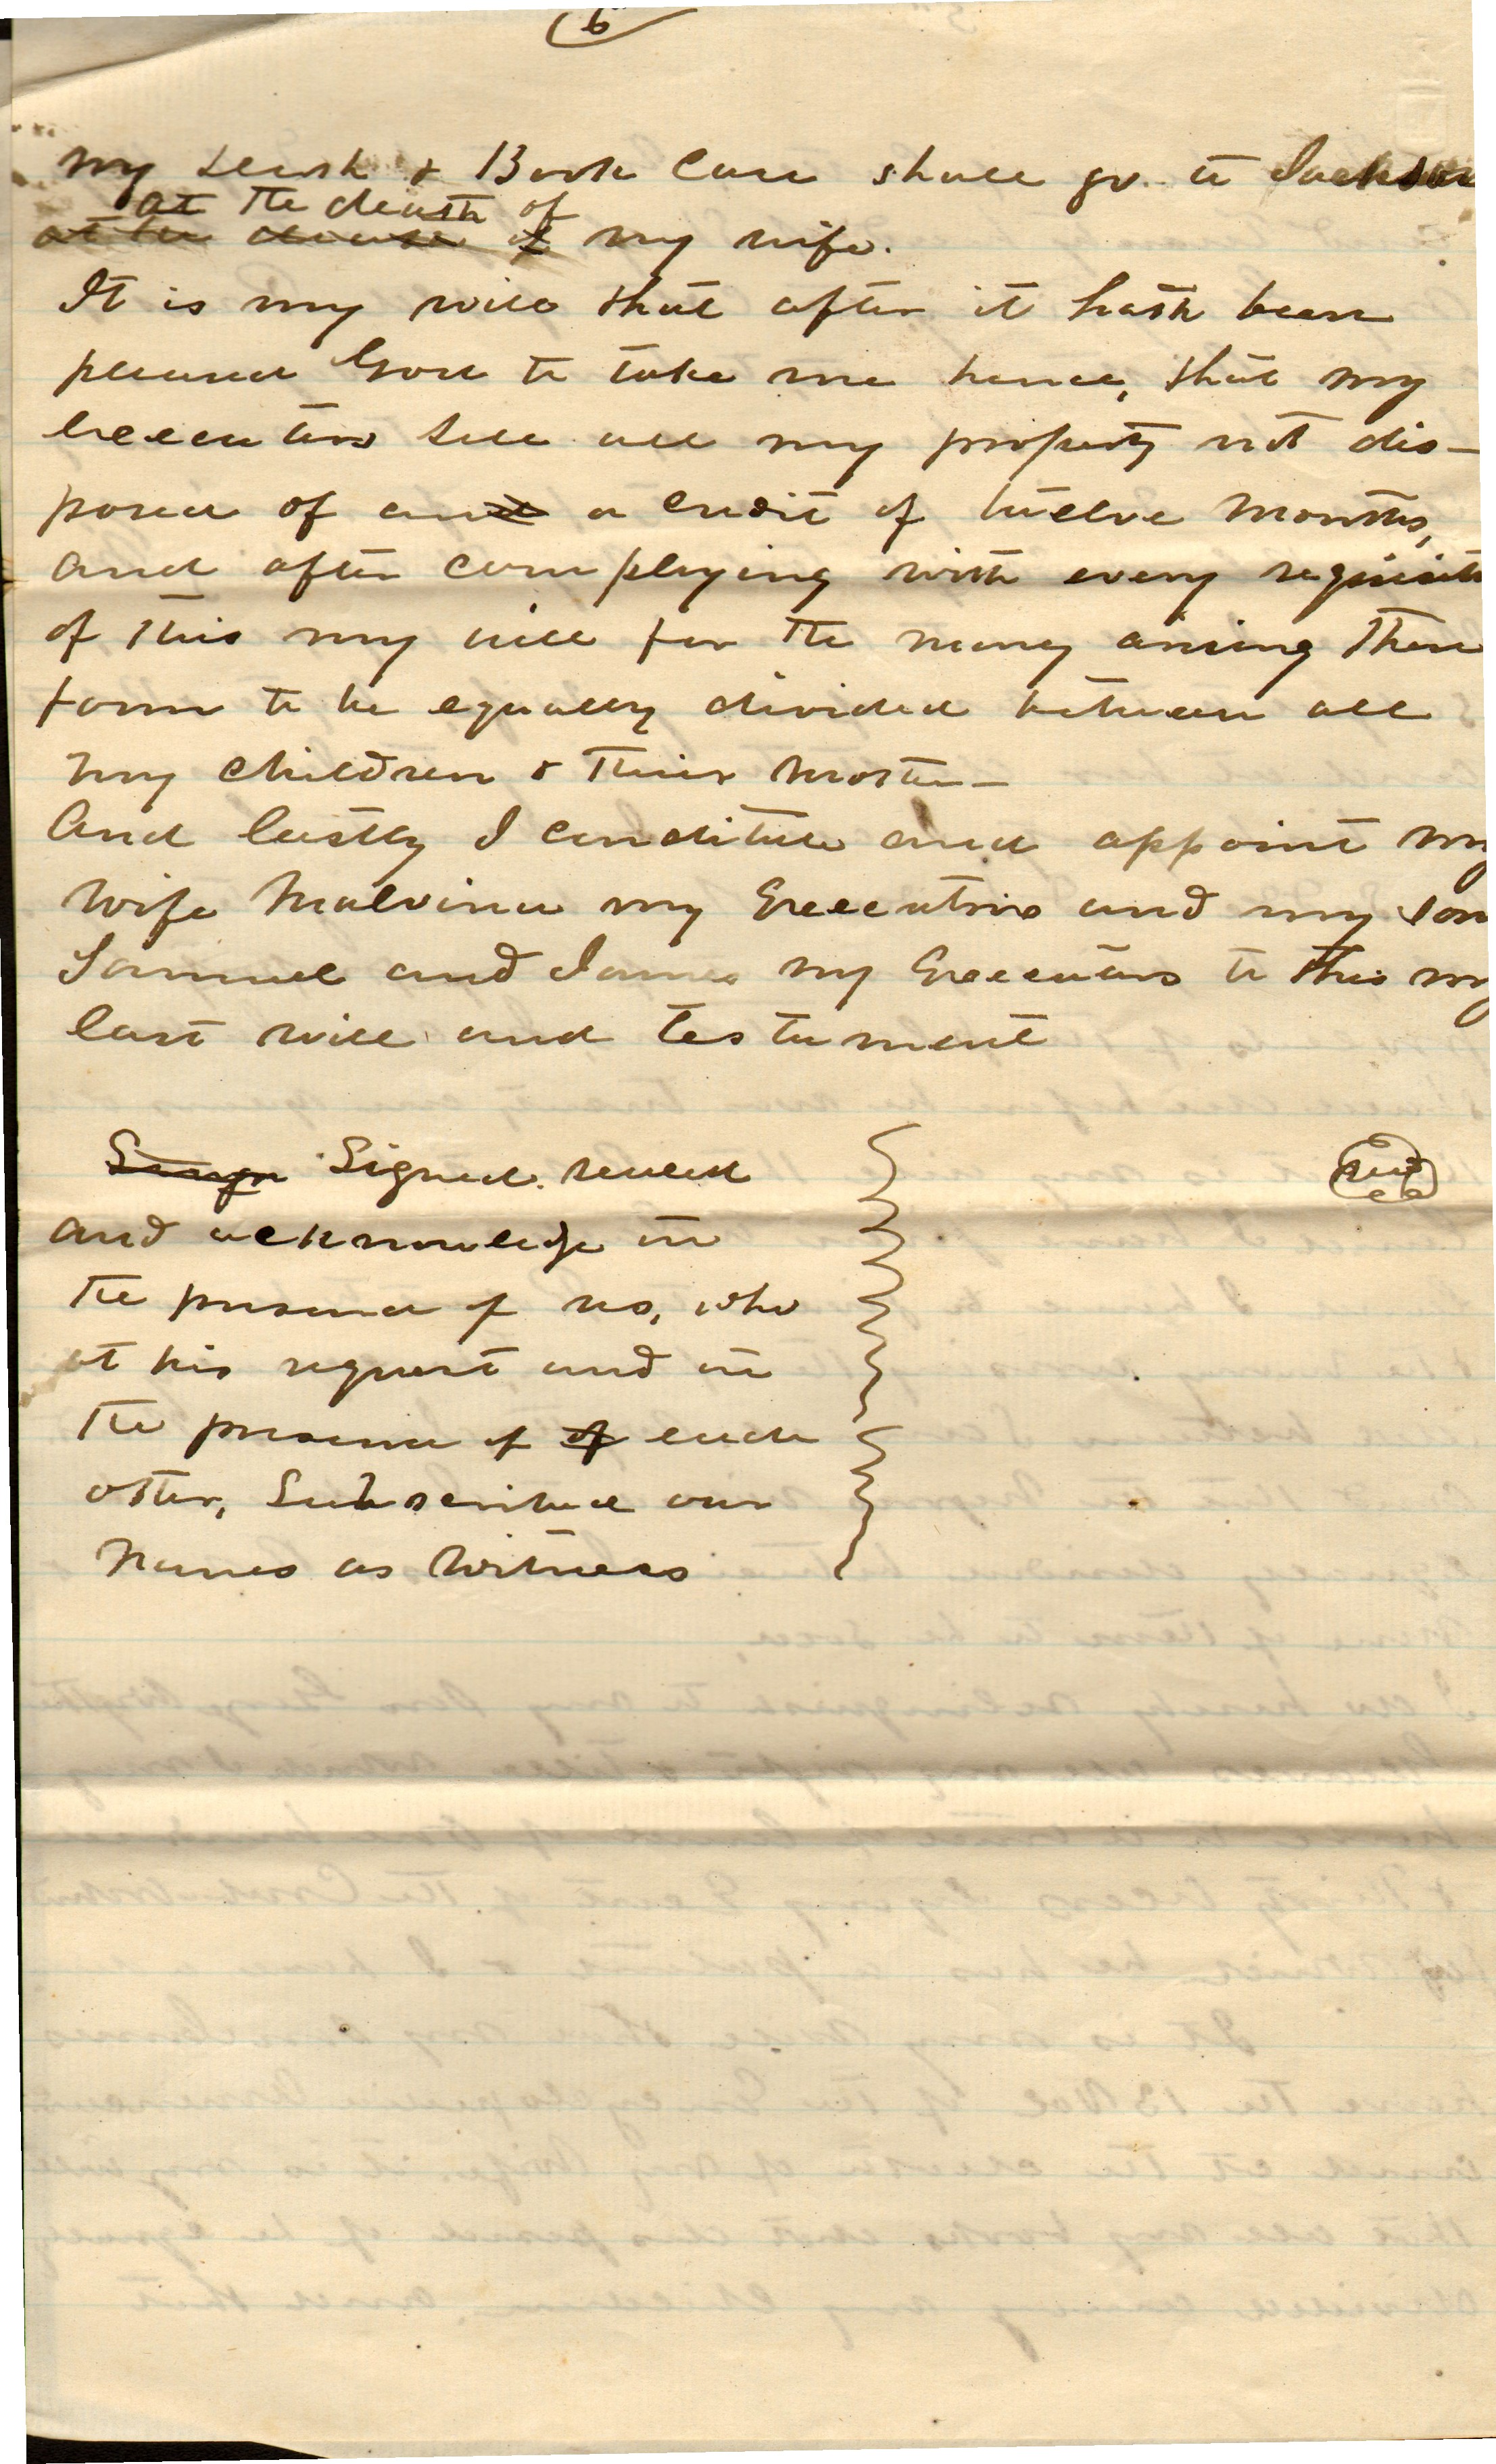 6
my Desk & Book Case shall go to Jackson
at the death of
at the decease of my wife.
It is my will that after it hath been
pleased God to take me hence, that my
Executors sell all my property not dis-
posed of and a credit of twelve months,
and after complying with every requisite
of this my will for the money arising there
form to be equally divided between all
my children & their mother-
And lastly I constitute and appoint my
wife Malvina my Executrix and my son
Samuel and James my Executors to this my
last will and testament
Singn Signed sealed
and acknowledge in
the presence of us, who
at his request and in
the presence of of each
other, Subscribed our
Names as witness
Seal